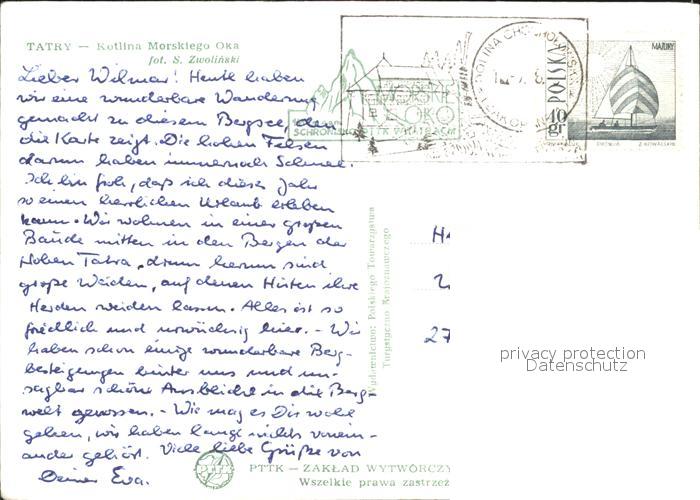 TATRY — Kotlina Morskiego Oka
fot. S. Zwoliński
Lieber Wilmar! Heute haben
wir eine wunderbare Wanderung
gemacht zu diesem Bergsee, den
die Karte zeigt. Die hohen Felsen
darum haben immer noch Schnee.
Ich bin froh, daß ich dieses Jahr
so einen herrlichen Urlaub erleben
kann. Wir wohnen in einer großen
Baude mitten in den Bergen der
Hohen Tatra, drum herum sind
große Weiden, auf denen Hirten ihre
Herden weiden lassen. Alles ist so
friedlich und urwüchsig hier. - Wir
haben schon einige wunderbare Berg-
besteigungen hinter uns und un-
sagbar schöne Ausblicke in die Berg-
welt genossen. - Wie mag es Dir wohl
gehen, wir haben lange nichts vonein-
ander gehört. Viele liebe Grüße von
Deiner Eva.
MORSKIE
OKO
SCHRONISKO PTTK
DOLINA
ZAKOP
POLSKA
10
gr
MAZURY
Wydawnictwo: Polskiego Towarzystwa
Turystyczno Krajoznawczego
27
privacy protection
Datenschutz
PTTK
PTTK — ZAKŁAD WYTWÓRCZY
Wszelkie prawa zastrzeż